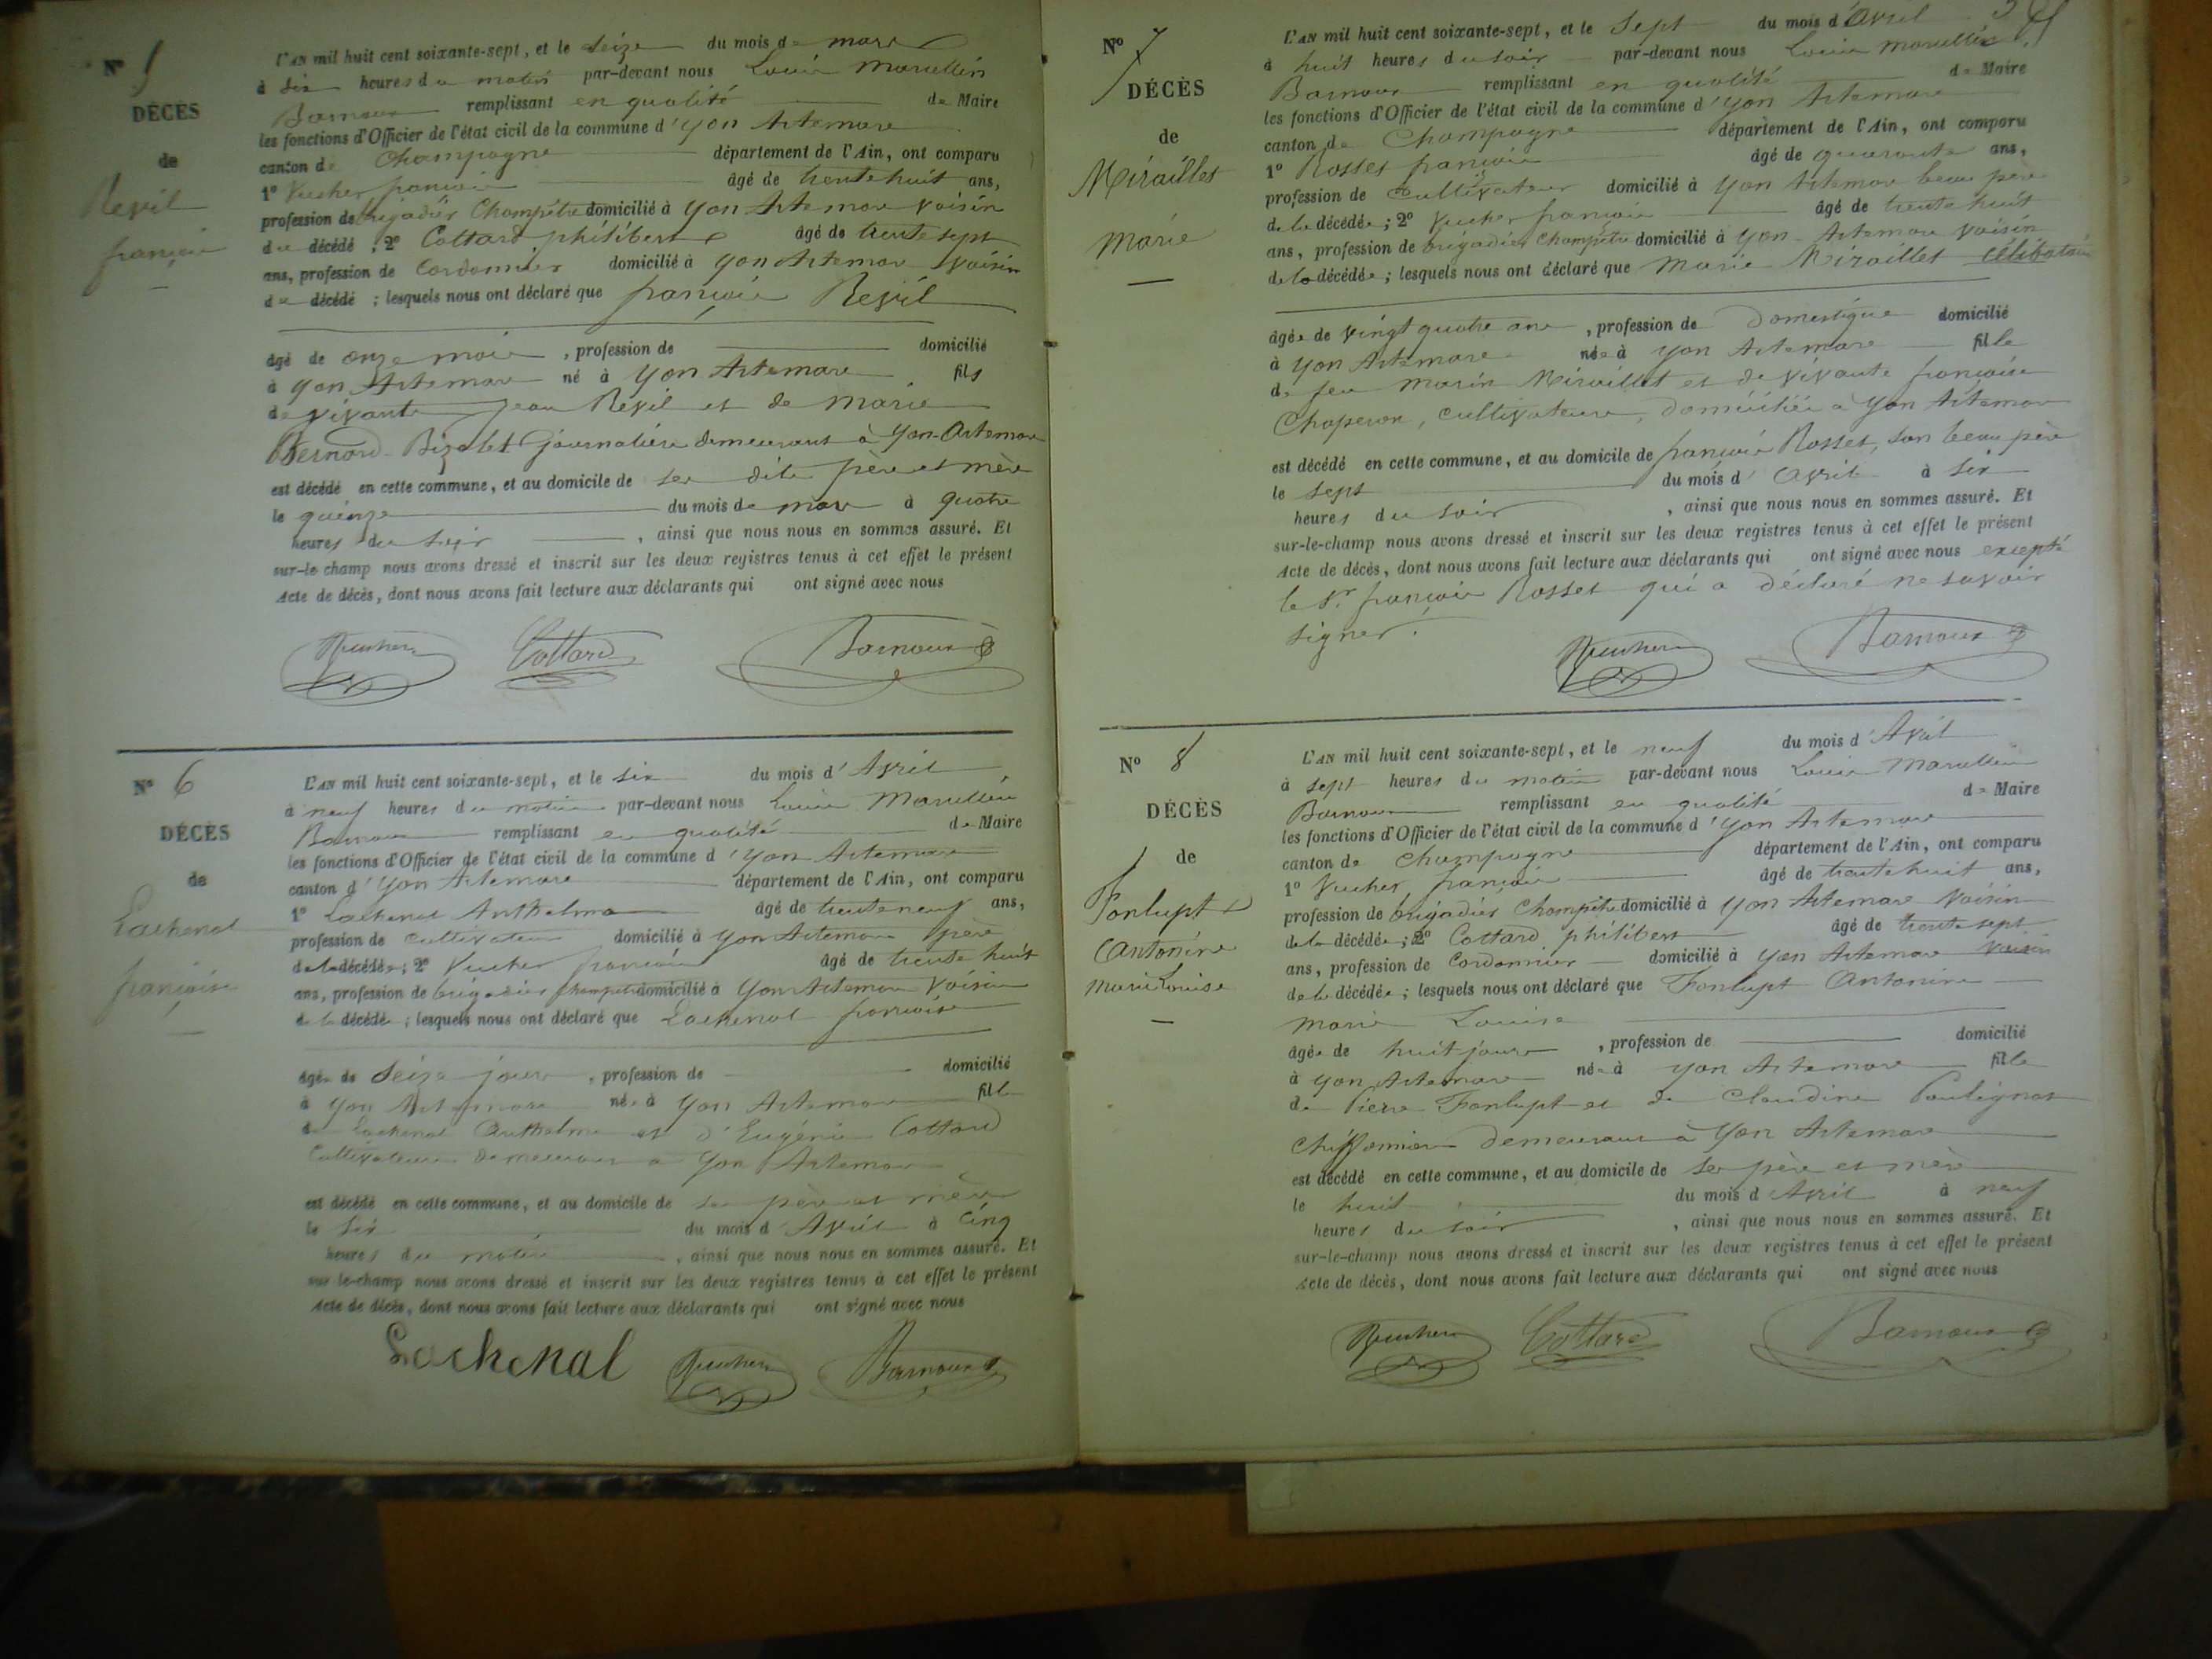 N° 5
DÉCÈS
de
Revil
françois
L'AN mil huit cent soixante-sept, et le seize du mois de mars
à six heures du matin par-devant nous Louis Marcellin
Barnoux remplissant en qualité de Maire
les fonctions d'Officier de l'état civil de la commune d'yon Artemare
canton de Champagne département de l'Ain, ont comparu
1° Vucher françois âgé de trente huit ans,
profession de brigadier Champêtre domicilié à yon Artemare voisin
du décédé ; 2° Cottard philibert âgé de trente sept
ans, profession de Cordonnier domicilié à yon Artemare voisin
du décédé ; lesquels nous ont déclaré que françois Revil
âgé de onze mois , profession de domicilié
à yon Artemare né à yon Artemare fils
de vivants Jean Revil et de Marie
Bernard-Bizolet journaliers demeurant à Yon-Artemare
est décédé en cette commune, et au domicile de ses dits père et mère
le quinze du mois de mars à quatre
heures du soir , ainsi que nous nous en sommes assuré. Et
sur-le champ nous avons dressé et inscrit sur les deux registres tenus à cet effet le présent
Acte de décès, dont nous avons fait lecture aux déclarants qui ont signé avec nous
Vucher Cottard Barnoux
N° 6
DÉCÈS
de
Lachenal
françoise
L'AN mil huit cent soixante-sept, et le six du mois d'Avril
à neuf heures du matin par-devant nous Louis Marcellin
Barnoux remplissant en qualité de Maire
les fonctions d'Officier de l'état civil de la commune d'yon Artemare
canton d'yon Artemare département de l'Ain, ont comparu
1° Lachenal Anthelme âgé de trente neuf ans,
profession de cultivateur domicilié à yon Artemare père
de la décédée ; 2° Vucher françois âgé de trente huit
ans, profession de brigadier champêtre domicilié à Yon Artemare Voisin
de la décédée ; lesquels nous ont déclaré que Lachenal françoise
âgée de seize jours , profession de domicilié
à yon Artemare née à yon Artemare fille
de Lachenal Anthelme et d'Eugénie Cottard
Cultivateurs demeurant à Yon Artemare
est décédé en cette commune, et au domicile de ses père et mère
le six du mois d'Avril à cinq
heures du matin , ainsi que nous nous en sommes assuré. Et
sur le-champ nous avons dressé et inscrit sur les deux registres tenus à cet effet le présent
Acte de décès, dont nous avons fait lecture aux déclarants qui ont signé avec nous
Lachenal Vucher Barnoux
N° 7
DÉCÈS
de
Miraillet
Marie
L'AN mil huit cent soixante-sept, et le sept du mois d'Avril
à huit heures du soir par-devant nous Louis Marcellin
Barnoux remplissant en qualité de Maire
les fonctions d'Officier de l'état civil de la commune d'yon Artemare
canton de Champagne département de l'Ain, ont comparu
1° Rosset françois âgé de quarante ans,
profession de cultivateur domicilié à yon Artemare beau père
de la décédée ; 2° Vucher françois âgé de trente huit
ans, profession de brigadier champêtre domicilié à yon-Artemare voisin
de la décédée ; lesquels nous ont déclaré que Marie Miraillet célibataire
âgée de vingt quatre ans , profession de Domestique domicilié
à yon Artemare née à yon Artemare fille
de feu Marin Miraillet et de vivante françoise
Chaperon, cultivateurs, domiciliée à yon Artemare
est décédé en cette commune, et au domicile de françois Rosset, son beau père
le sept du mois d'Avril à six
heures du soir , ainsi que nous nous en sommes assuré. Et
sur-le-champ nous avons dressé et inscrit sur les deux registres tenus à cet effet le présent
Acte de décès, dont nous avons fait lecture aux déclarants qui ont signé avec nous excepté
le Sr. françois Rosset qui a déclaré ne savoir
signer.
Vucher Barnoux
N° 8
DÉCÈS
de
Fonlupt
Antonine
Marie Louise
L'AN mil huit cent soixante-sept, et le neuf du mois d'Avril
à sept heures du matin par-devant nous Louis Marcellin
Barnoux remplissant en qualité de Maire
les fonctions d'Officier de l'état civil de la commune d'yon Artemare
canton de Champagne département de l'Ain, ont comparu
1° Vucher françois âgé de trente huit ans,
profession de brigadier Champêtre domicilié à yon Artemare Voisin
de la décédée ; 2° Cottard philibert âgé de trente sept
ans, profession de Cordonnier domicilié à yon Artemare voisin
de la décédée ; lesquels nous ont déclaré que Fonlupt Antonine
Marie Louise
âgée de huit jours , profession de domicilié
à yon Artemare née à yon Artemare fille
de Pierre Fonlupt et de Claudine
Chiffonniers demeurant à Yon Artemare
est décédé en cette commune, et au domicile de ses père et mère
le huit du mois d'Avril à neuf
heures du soir , ainsi que nous nous en sommes assuré. Et
sur-le-champ nous avons dressé et inscrit sur les deux registres tenus à cet effet le présent
Acte de décès, dont nous avons fait lecture aux déclarants qui ont signé avec nous
Vucher Cottard Barnoux